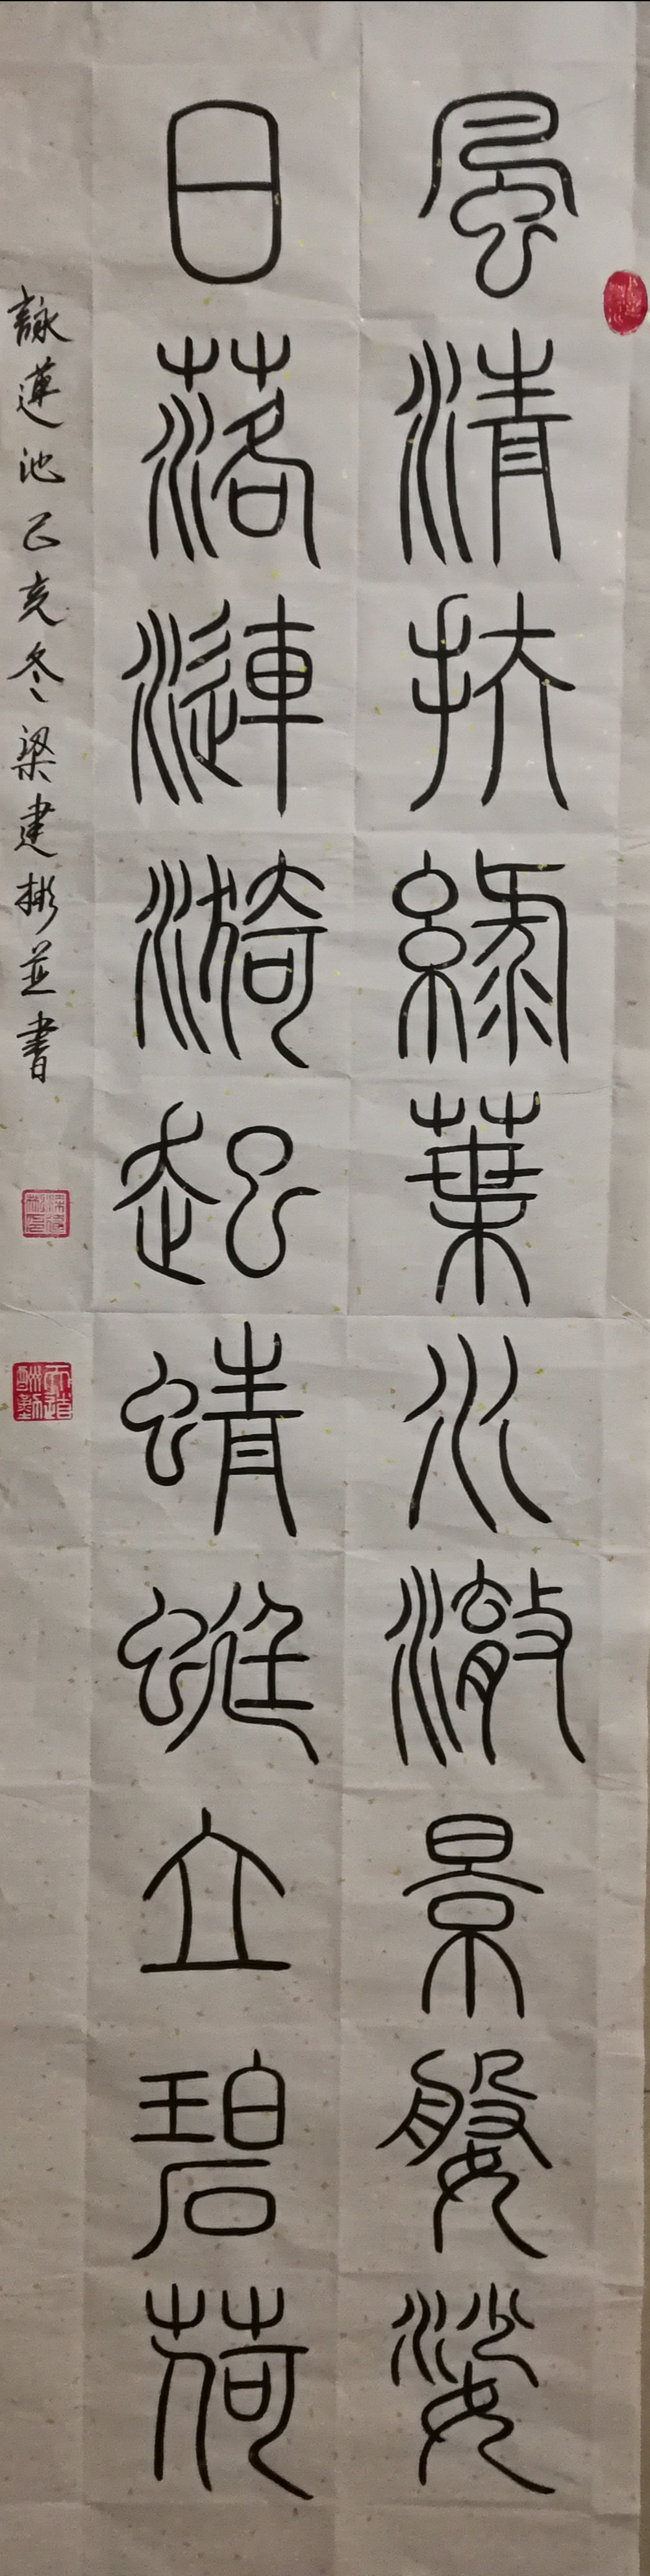 風清扶綠葉水澈景媻娑
日落漣漪起蜻蜓立碧荷
詠蓮池己亥冬梁建彬並書